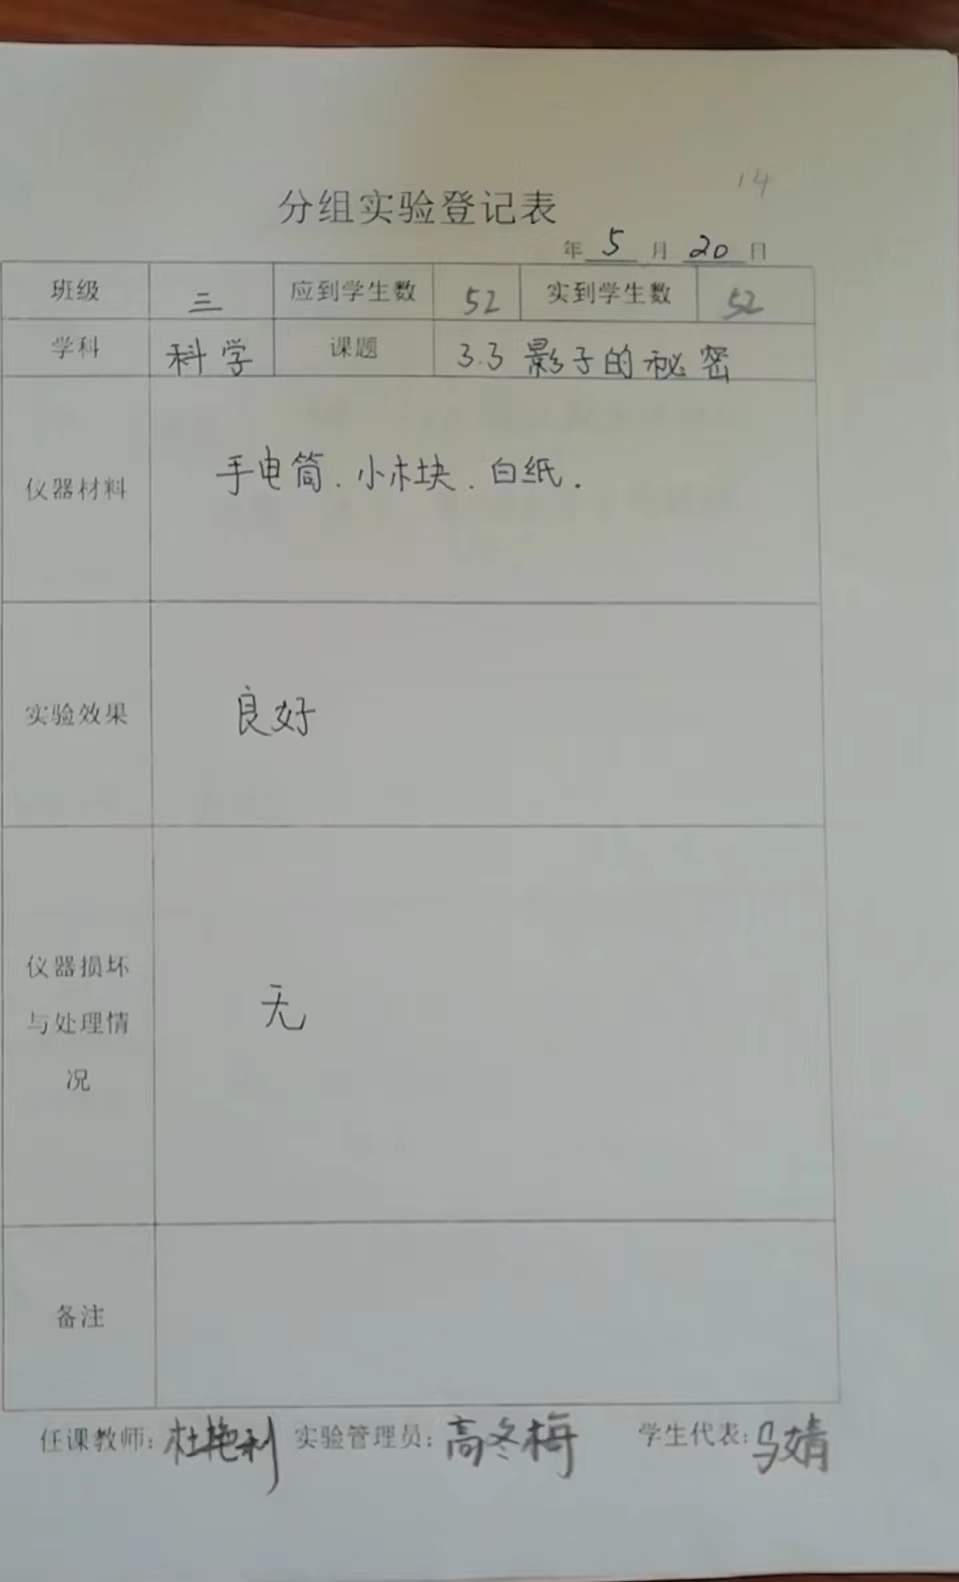 14
分组实验登记表
年 5 月 20 日
班级 三 应到学生数 52 实到学生数 52
学科 科学 课题 3.3 影子的秘密
仪器材料 手电筒.小木块.白纸.
实验效果 良好
仪器损坏
与处理情 无
况
备注
任课教师:杜艳利 实验管理员:高冬梅 学生代表:马婧